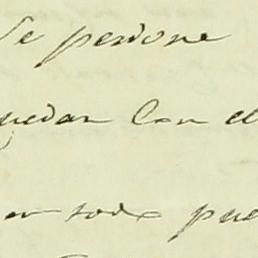 Se perdone
quedan con el
en todo pue